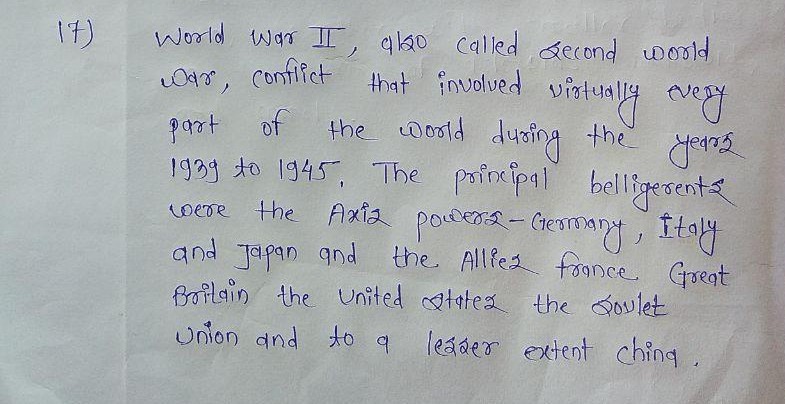 17) World War II, also called second world
war, conflict that involved virtually every
part of the world during the years
1939 to 1945. The principal belligerents
were the Axis powers - Germany, Italy
and Japan and the Allies france Great
Britain the united states the soviet
union and to a lesser extent china.